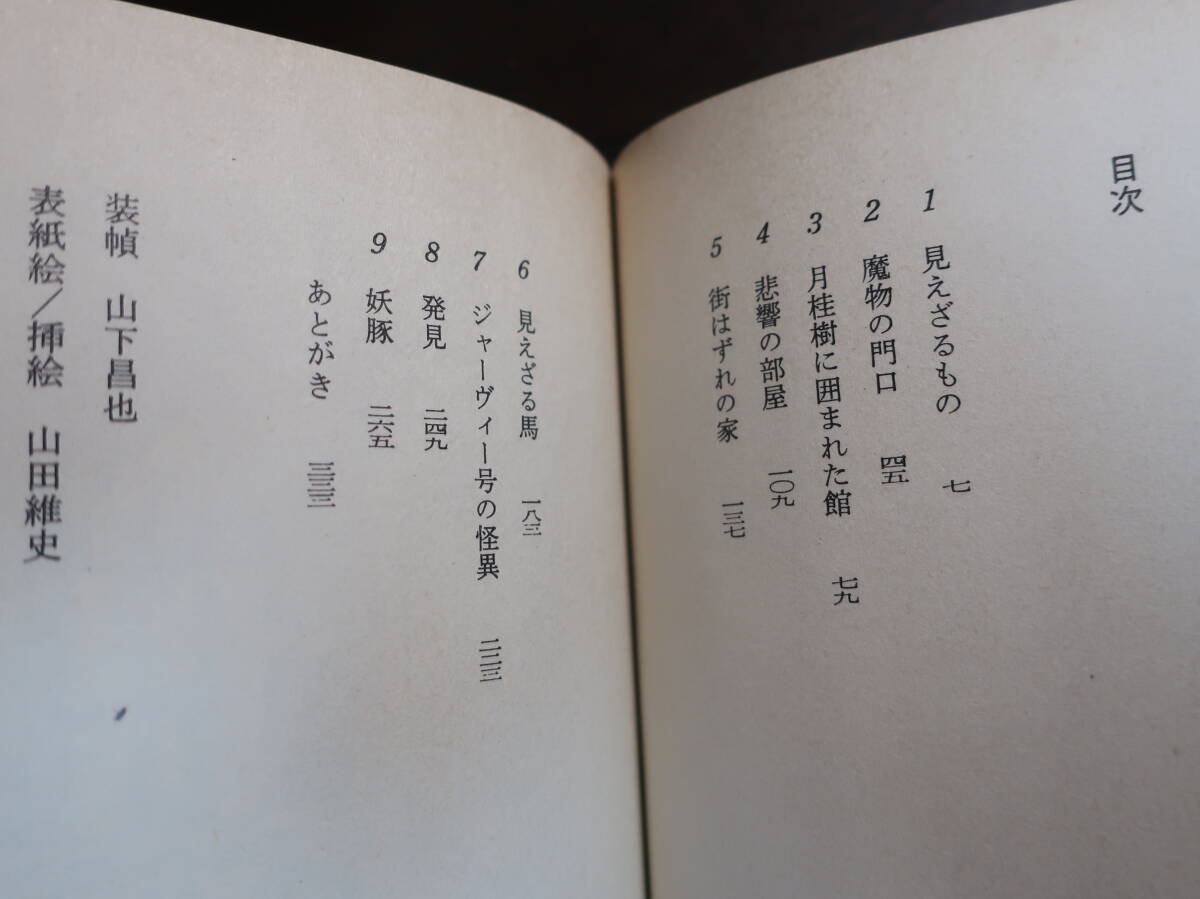 目次
1 見えざるもの 七
2 魔物の門口 四五
3 月桂樹に囲まれた館 七九
4 悲響の部屋 一〇九
5 街はずれの家 一三七
6 見えざる馬 一八三
7 ジャーヴィー号の怪異 二二三
8 発見 二四九
9 妖豚 二六五
あとがき 三三三
装幀 山下昌也
表紙絵/挿絵 山田維史